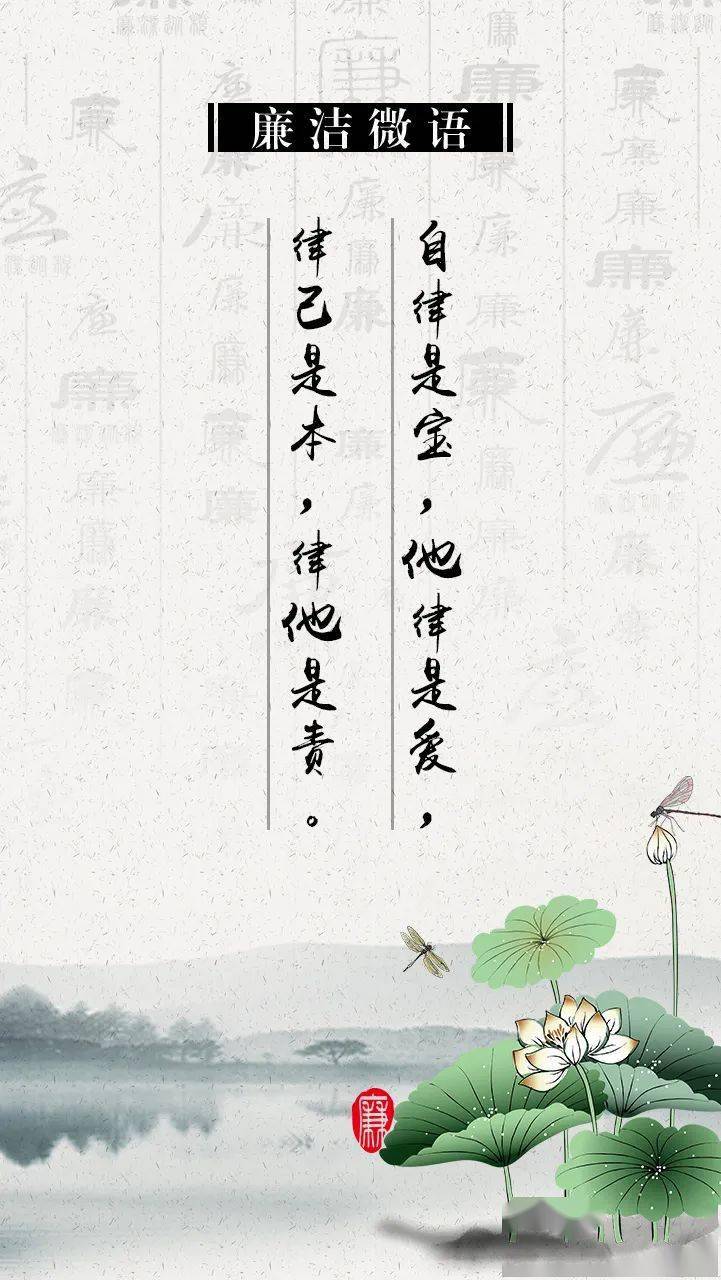 廉洁微语
自律是宝，他律是爱，
律己是本，律他是责。
廉